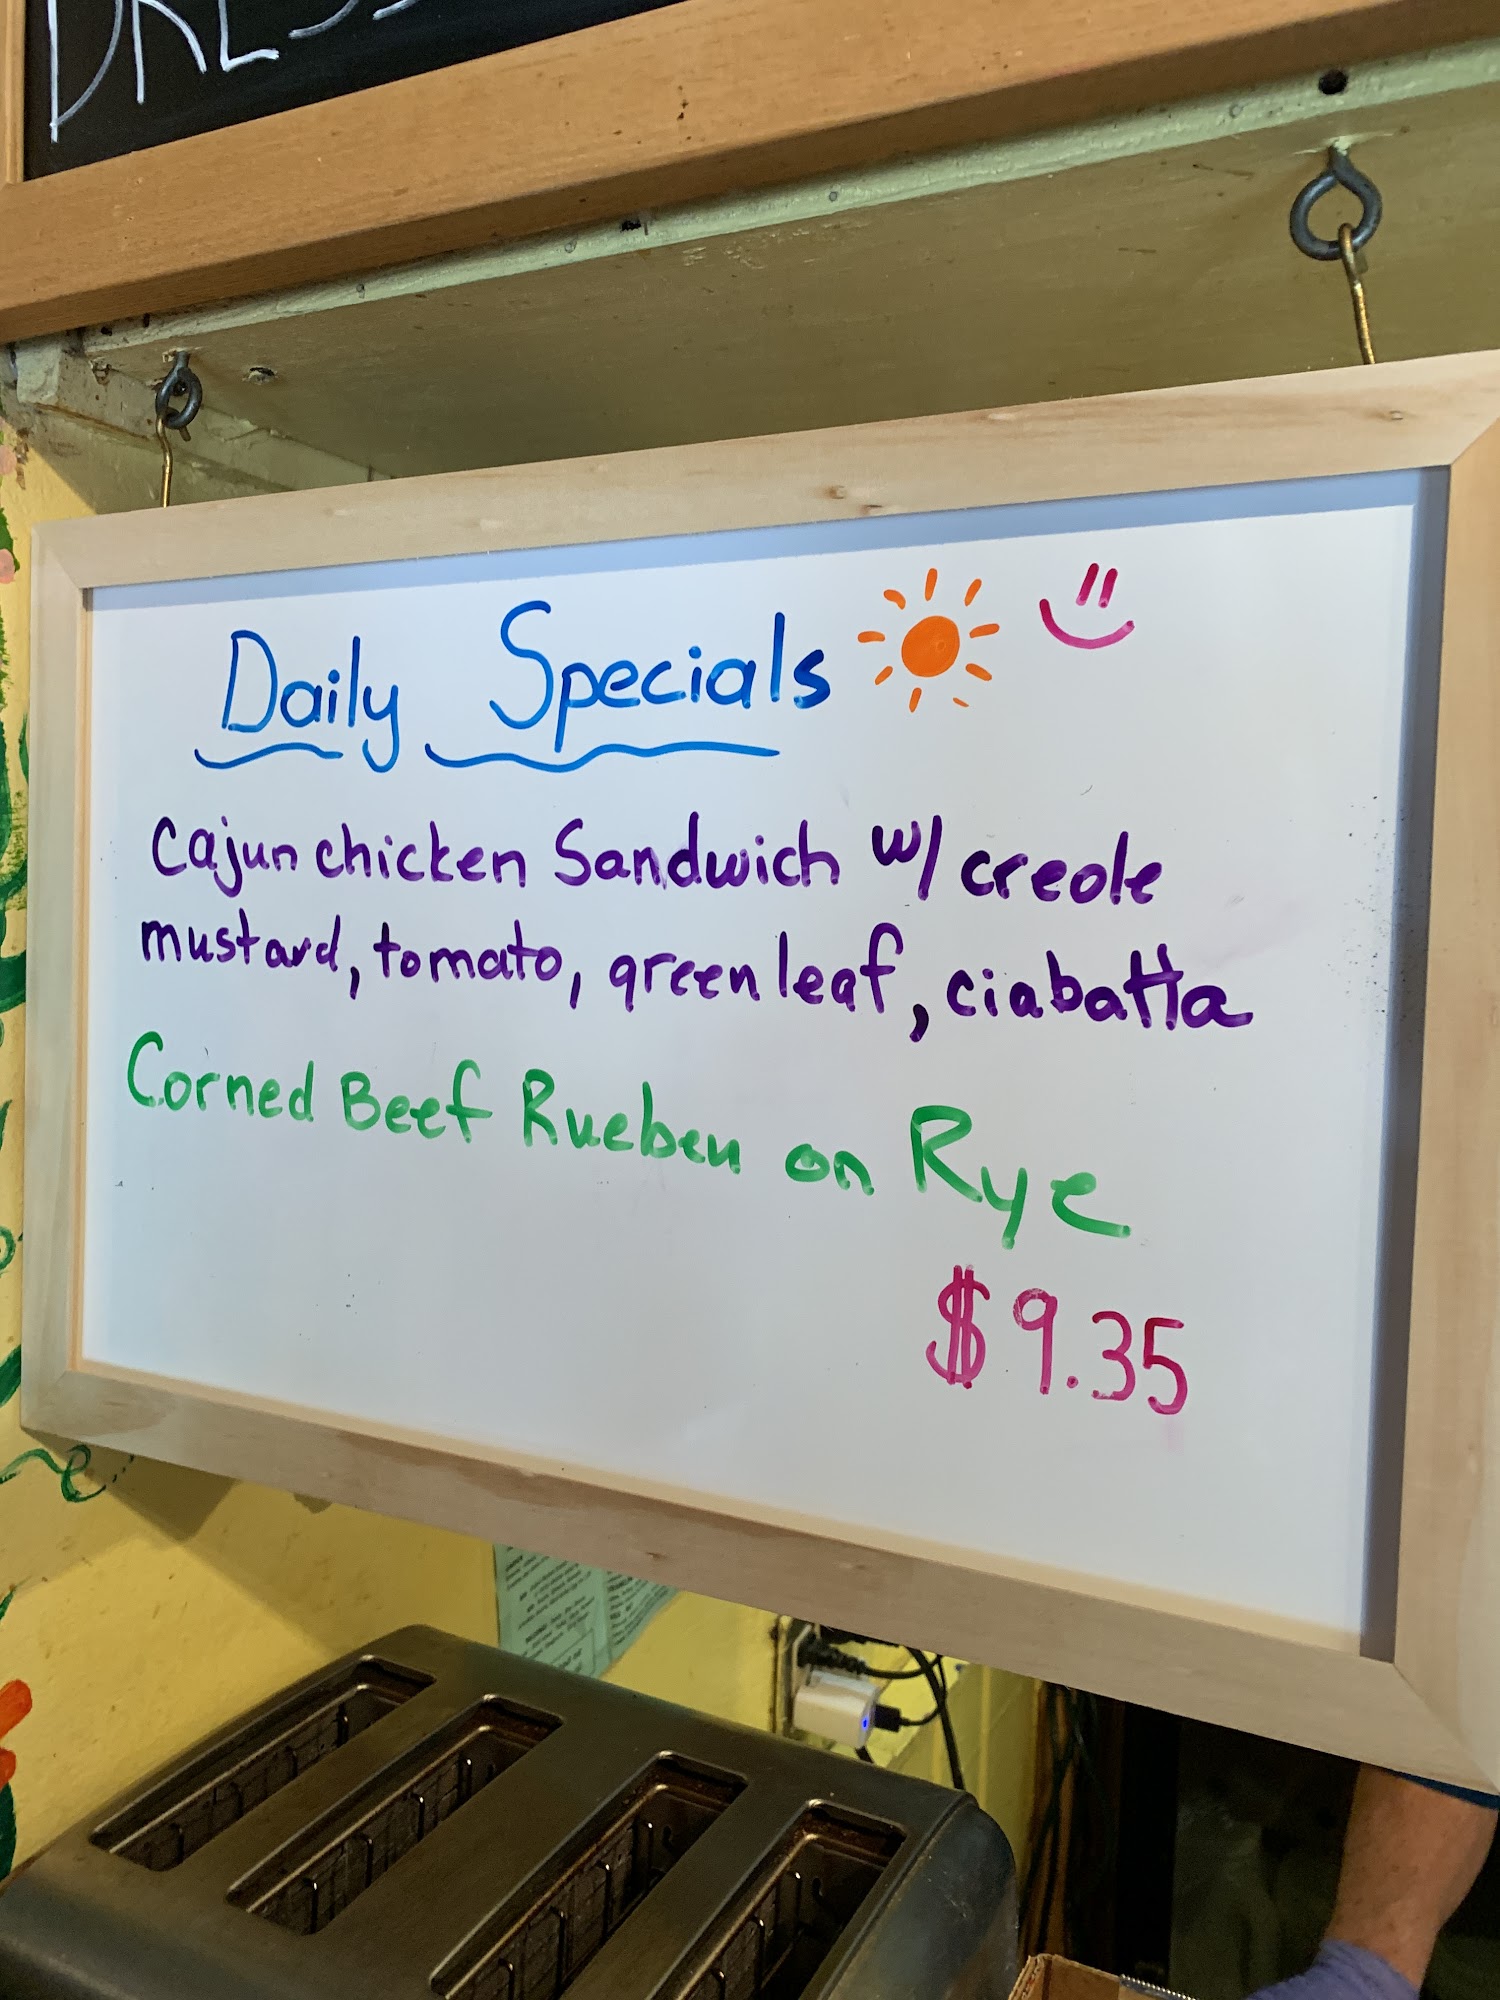 Daily Specials
Cajun chicken Sandwich w/ creole
mustard, tomato, green leaf, ciabatta
Corned Beef Rueben on Rye
$9.35